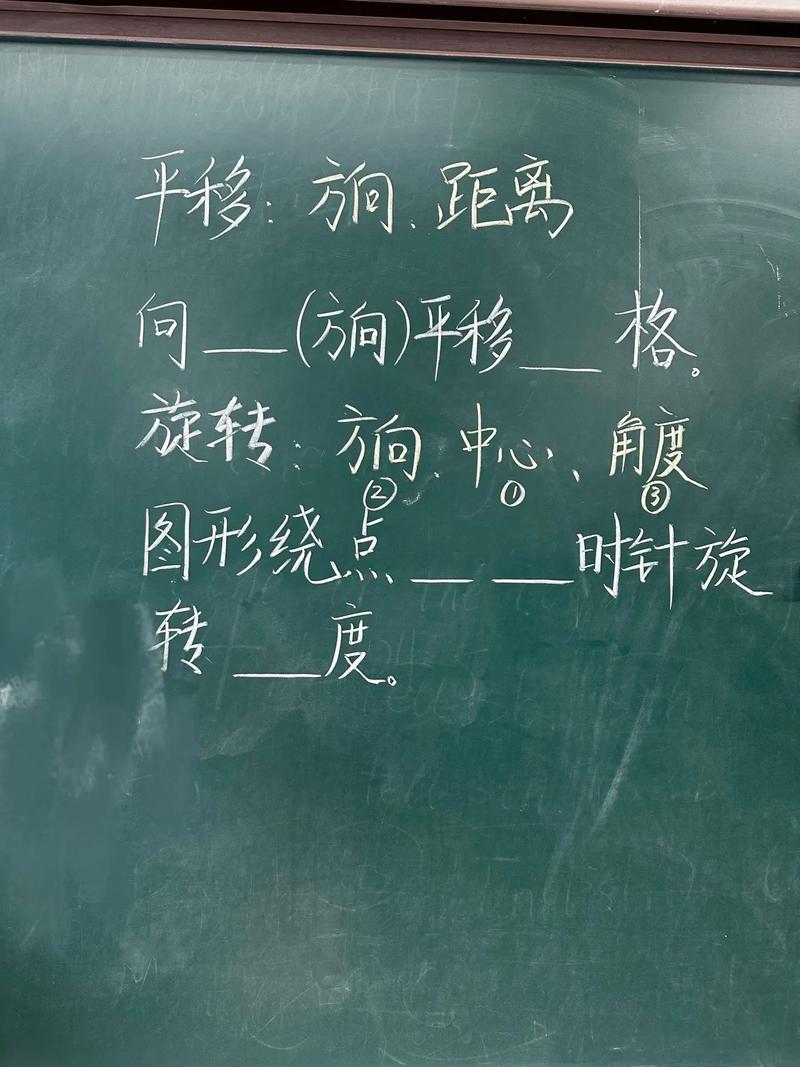 平移：方向、距离
向___(方向)平移___格。
旋转：方向、中心、角度
② ① ③
图形绕点___ ___时针旋
转___度。